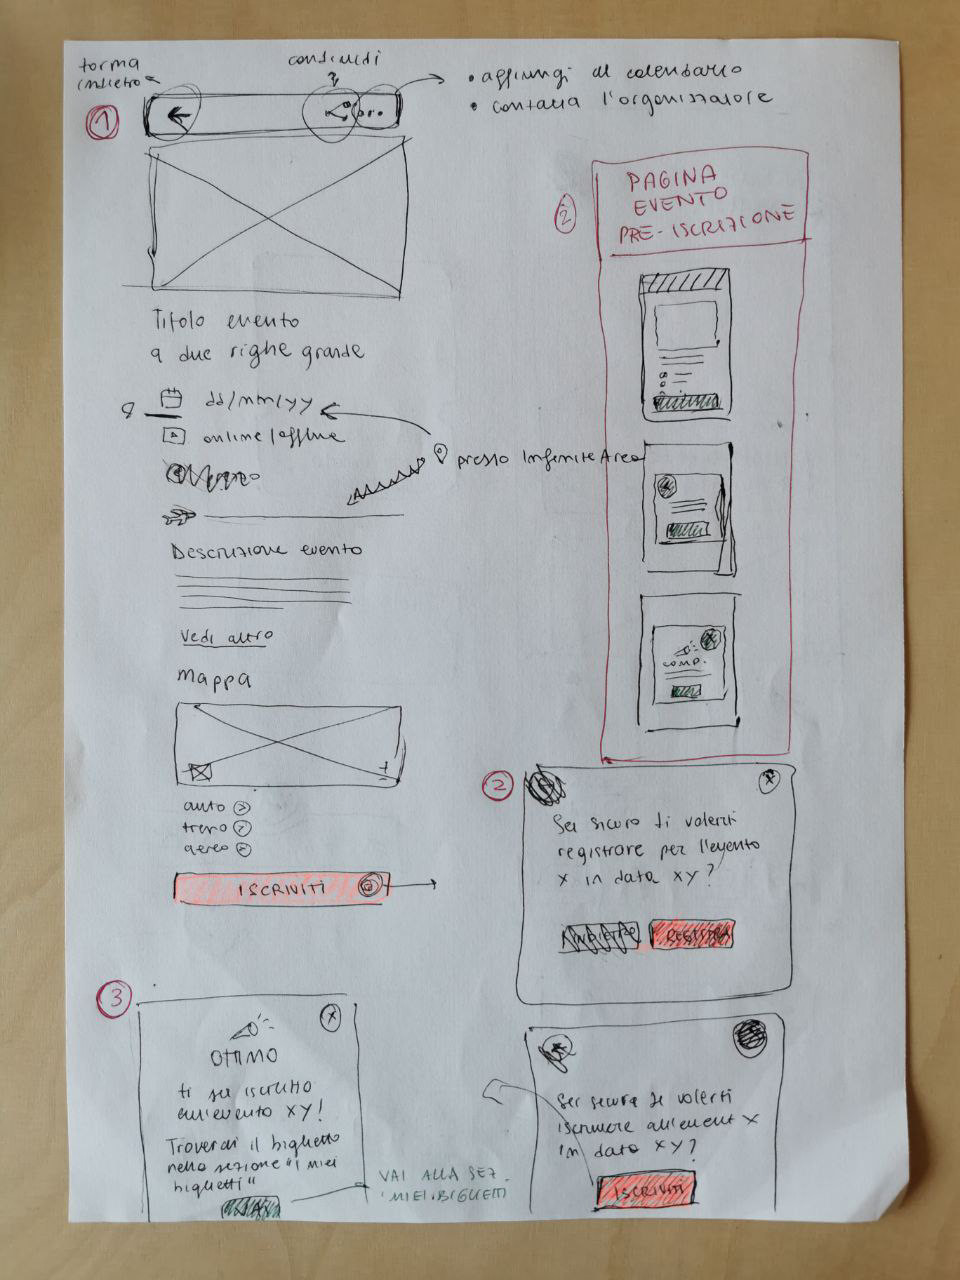 torna
indietro
condividi
• aggiungi al calendario
• contatta l'organizzatore
1
Titolo evento
a due righe grande
8
dd/mm/yy
online/offline
presso Infinite Area
Descrizione evento
Vedi altro
Mappa
+
-
auto
treno
aereo
ISCRIVITI
2
PAGINA
EVENTO
PRE-ISCRIZIONE
COMP.
2
x
Sei sicuro di volerti
registrare per l'evento
x in data xy?
INDIETRO
REGISTRA
Sei sicura di volerti
iscrivere all'event x
in data xy?
ISCRIVITI
3
x
OTTIMO
ti sei iscritto
all'evento xy!
Troverai il biglietto
nella sezione "i miei
biglietti"
VAI ALLA SEZ.
I MIEI BIGLIETTI